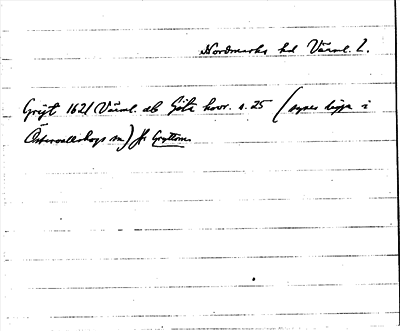 Nordmarks hd Värml. l.
Gryt 1621 Värml. älb Göta kvar. s. 25 (synes ligga i
Östervallskogs sn) jfr Gryttom